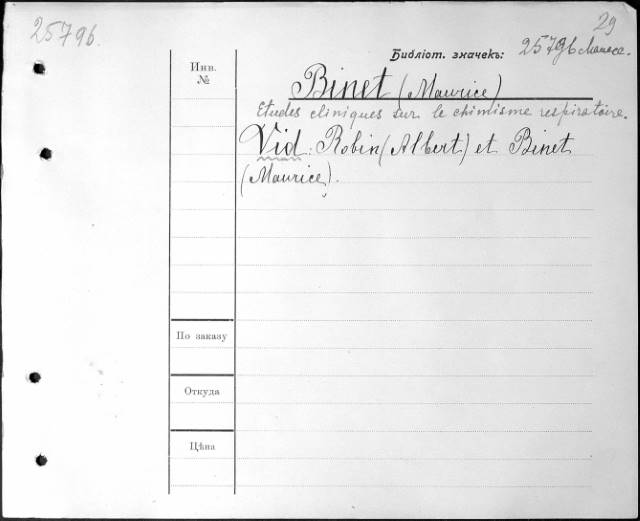 25796.
29
Библіот. значекъ: 25796
Инв.
№
Binet (Maurice)
Etudes cliniques sur le chimisme respiratoire.
Vid: Robin (Albert) et Binet
(Maurice).
По заказу
Откуда
Цѣна